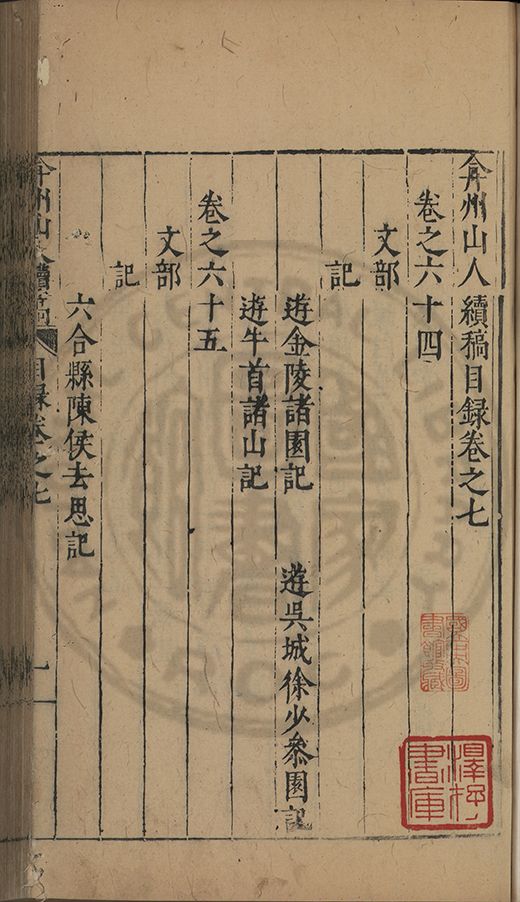 弇州山人續稿目録卷之七
卷之六十四
文部
記
遊金陵諸園記 遊吳城徐少叅園記
遊牛首諸山記
卷之六十五
文部
記
六合縣陳侯去思記
弇州山人續藁 目録卷之七 一
國立中央圖書館收藏
澤存書庫